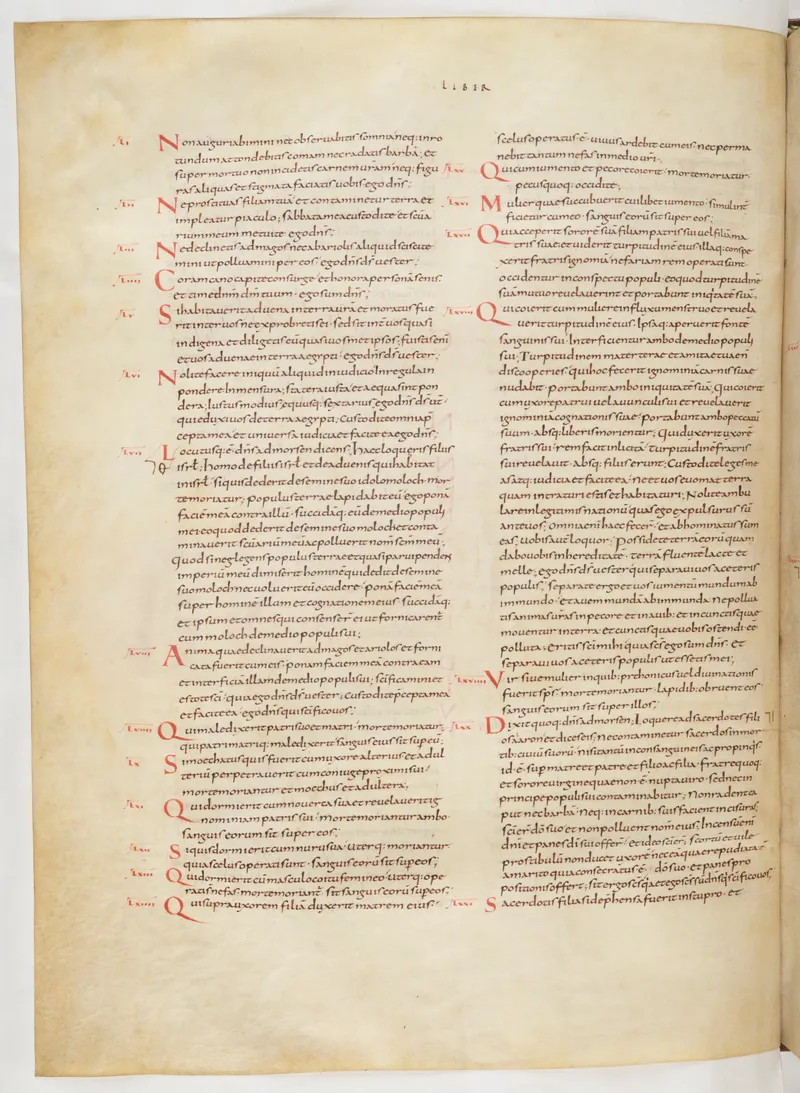 LIBER
Li Non auguriabimini nec observabitis somnia neq; in ro
tundum attondebitis comam nec radatis barbā; et
super mortuo non incidetis carnem vram neq; figu
ras aliquas et stigmata faciatis vobis ego dns;
Lii Ne prostituas filiam tuā et contaminetur terra et
impleatur piaculo; sabbata mea custodite et scua
rium meum metuite ego dns;
Liii Ne declinetis ad magos nec ab ariolis aliquid sciscite
mini ut polluamini per eos ego dns ds vester;
Liiii Coram cano capite consurge et honora personā senis
et time dnm dm tuum ego sum dns;
Lv Si habitaverit advena in terra vrā et moratus fue
rit inter vos ne exprobretis ei sed sit int vos quasi
indigena et diligetis eū quasi vosmet ipsos; fuistis eni
et vos advenae in terra aegypti ego dns ds vester;
Lvi Nolite facere iniquū aliquid in iudicio In regula in
pondere In mensura; statera iusta et aequa sint pon
dera; Iustus modius equusq; sextarius ego dns ds vr
qui eduxi vos de terra aegypti; Custodite omnia p
cepta mea et universa iudicia et facite ea ego dns;
Lvii Locutusq; ē dns ad morsen dicens; haec loqueris filiis
isrl; homo de filiis isrl et de advenis qui habitat
in isrl si quis dederit de semine suo idolo moloch mor
te moriatur; populus terrae lapidabit eū ego pona
faciē meā contra illū succidāq; eū de medio populi
mei eo quod dederit de semine suo moloch et conta
minaverit scuariū meū ac polluerit nom scm meū;
quod si neglegens populus terrae et quasi parvipendens
imperiū meū dimiserit hominē qui dedit de semine
suo moloch nec voluerit eū occidere ponā faciē meā
super hominē illam et cognationem eius succidāq;
et ipsum et omnes qui consenser ei ut fornicarent
cum moloch de medio populi sui;
Lviii Anima quae declinaverit ad magos et ariolos et forni
cata fuerit cum eis ponam faciem meā contra eam
et interficiā illam de medio populi sui; scificamini et
estote sci quia ego dns ds vester; Custodite pcepta mea
et facite ea ego dns qui scifico vos;
Lviiii Qui maledixerit patri suo et matri morte moriatur
qui patri matriq; maledixerit sanguis eius sit sup eū;
Lx Si moechatus quis fuerit cum uxore alterius et adul
teriū perpetraverit cum coniuge proximi sui
morte moriantur et moechus et adultera;
Lxi Qui dormierit cum noverca sua et revelaverit ig
nominiam patris sui morte moriantur ambo
sanguis eorum sit super eos;
Lxii Si quis dormierit cum nuru sua uterq; moriantur
quia scelus operati sunt sanguis eorū sit sup eos;
Lxiii Qui dormierit cū masculo coitu femineo uterq; ope
rati nefas morte moriant sit sanguis eorū sup eos;
Lxiiii Qui supra uxorem filiā duxerit matrem eius
scelus operatus ē vivus ardebit cum eis nec perma
nebit tantum nefas in medio vri;
Lxv Qui cum iumento et pecore coierit morte moriatur
pecus quoq; occidite;
Lxvi Mulier quae succubuerit cuilibet iumento simul int
ficietur cum eo sanguis eorū sit super eos;
Lxvii Qui acceperit sororē suā filiam patris sui vel filiā ma
tris suae et viderit turpitudinē eius illaq; conspe
xerit fratris ignominiā nefariam rem operati sunt
occidentur in conspectu populi eo quod turpitudinē
suā mutuo revelaverint et portabunt iniqtatē suā
Lxviii Qui coierit cum muliere in fluxu menstruo et revela
verit turpitudinē eius Ipsaq; aperuerit fontē
sanguinis sui Interficientur ambo de medio populi
sui; Turpitudinem materterae et amitae tuae n
discooperies qui hoc fecerit ignominiā carnis suae
nudabit portabunt ambo iniquitatē suā; Qui coierit
cum uxore patrui vel avunculi sui et revelaverit
ignominiā cognationis suae portabunt ambo peccatū
suum absq; liberis morientur; Qui duxerit uxorē
fratris sui rem facit inlicitā turpitudinē fratris
sui revelavit absq; filiis erunt; Custodite leges me
as atq; iudicia et facite ea Ne et vos evomat terra
quam intraturi estis et habitaturi; Nolite ambu
lare in legitimis nationū quas ego expulsurus sū
ante vos; Omnia eni haec fecer et abhominatus sum
eas vobis autē loquor possidete terrā eorū quam
dabo vobis in hereditatē terrā fluentē lacte et
melle; ego dns ds vester qui separavi vos a ceteris
populis separate ergo et vos iumentū mundum ab
immundo et avem mundā ab immunda Ne pollua
tis animas vras in pecore et in avib; et in cunctis quae
moventur in terra et cunctis quae vobis ostendi eē
polluta; eritis sci mihi quia sc ego sum dns et
separavi vos a ceteris populis ut essetis mei;
Lxviiii Vir sive mulier in quib; pythonicus vel divinationis
fuerit sps morte moriantur lapidib; obruent eos
sanguis eorum sit super illos;
Lxx Dixit quoq; dns ad morsen; Loquere ad sacerdotes fili
os aaron et dices eis; Ne contaminetur sacerdos in mor
tib; civiū suorū nisi tantū in consanguineis ac propinqs
id ē sup matre et patre et filio ac filia fratre quoq;
et sorore virgine quae non ē nupta viro sed nec in
principe populi sui contaminabitur; Non radent ca
put nec barbā neq; in carnib; suis facient incisuras
sci er dō suo et non polluent nom eius; Incensū eni
dni et panes di sui offer et ideo sci er; scortū et vile
prostibulū non ducet uxorē nec ea quae repudiata ē
a marito quia consecratus ē dō suo et panes pro
positionis offert; sit ergo scs qa et ego scs sū dns qui scifico vos;
Lxxi Sacerdotis filia si dephensa fuerit in stupro et